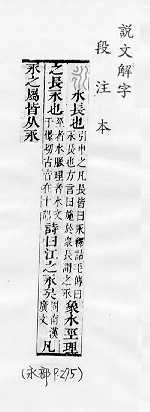 說文解字
段注本
水長也引申之凡長皆曰永釋詁毛傳曰永長也方言曰施於衆長謂之永象水巠理
之長永也巠者水脈理者水文于憬切古音在十部詩曰江之永矣周南漢廣文凡
永之屬皆从永
(永部 P.275)